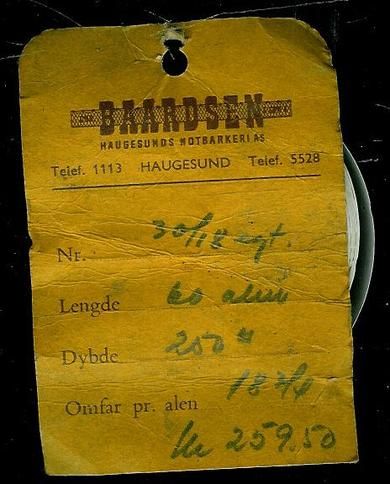 BAARDSEN
HAUGESUNDS NOTBARKERI AS
Telef. 1113 HAUGESUND Telef. 5528
Nr. 30/18 egt.
Lengde 60 alen
Dybde 250 "
Omfar pr. alen 18 3/4
Kr 259.50